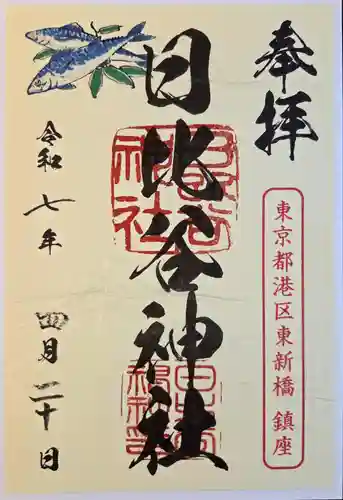 奉拝
東京都港区東新橋 鎮座
日比谷神社
令和七年 四月二十日